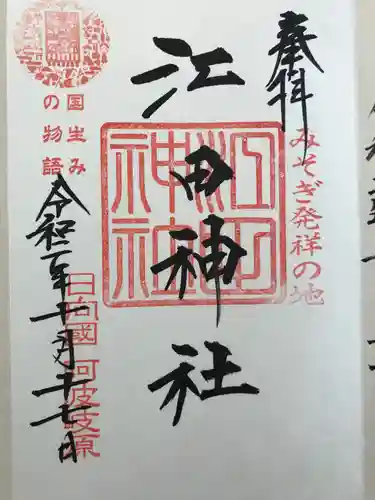 奉拝
みそぎ発祥の地
江田神社
江田神社
国生み
の物語
日向國 阿波岐原
令和二年十一月二十七日